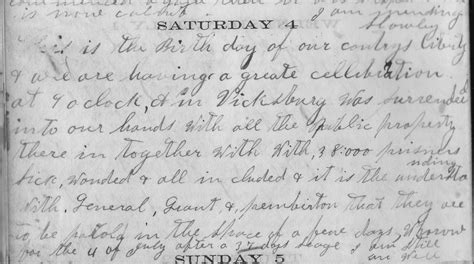 is more cal
I am
slowley
SATURDAY 4
This is the Birth day of our contrys liberty
& we are having a greate cellibration
at 9 oclock, & in Vicksburg was surrended
into our hands with all the public property
there in together with with, 38000 prisners
sick, wonded & all in cluded & it is the understa
nding
with. General, Grant, & pemberton that they are
to be parold in the space of a few days, Whorow
for the 4 of July after a 37 days seage I am still
am well
SUNDAY 5